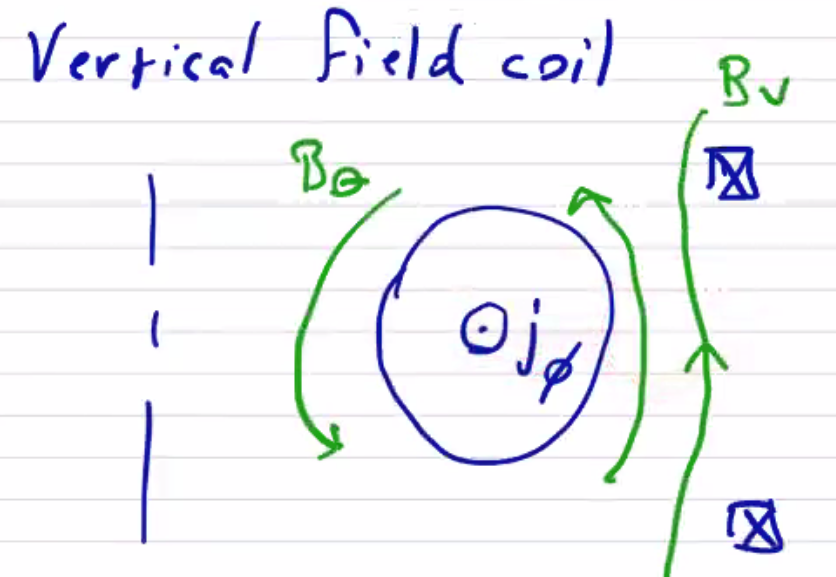 Vertical field coil
Bv
Bθ
jϕ